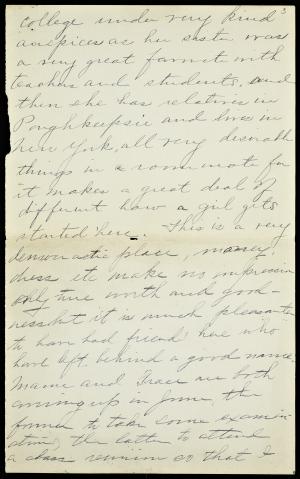 3
college under very kind
auspices as her sister was
a very great favorite with
teachers and students, and
then she has relatives in
Poughkeepsie and lives in
New York, all very desirable
things in a roommate for
it makes a great deal of
different how a girl gets
started here. This is a very
democratic place, money,
dress etc make no impression
only true worth and good-
ness but it is much pleasanter
to have had friends here who
have left behind a good name.
Mame and Grace are both
coming up in June, the
former to take some examin-
ations, the latter to attend
a class reunion so that I